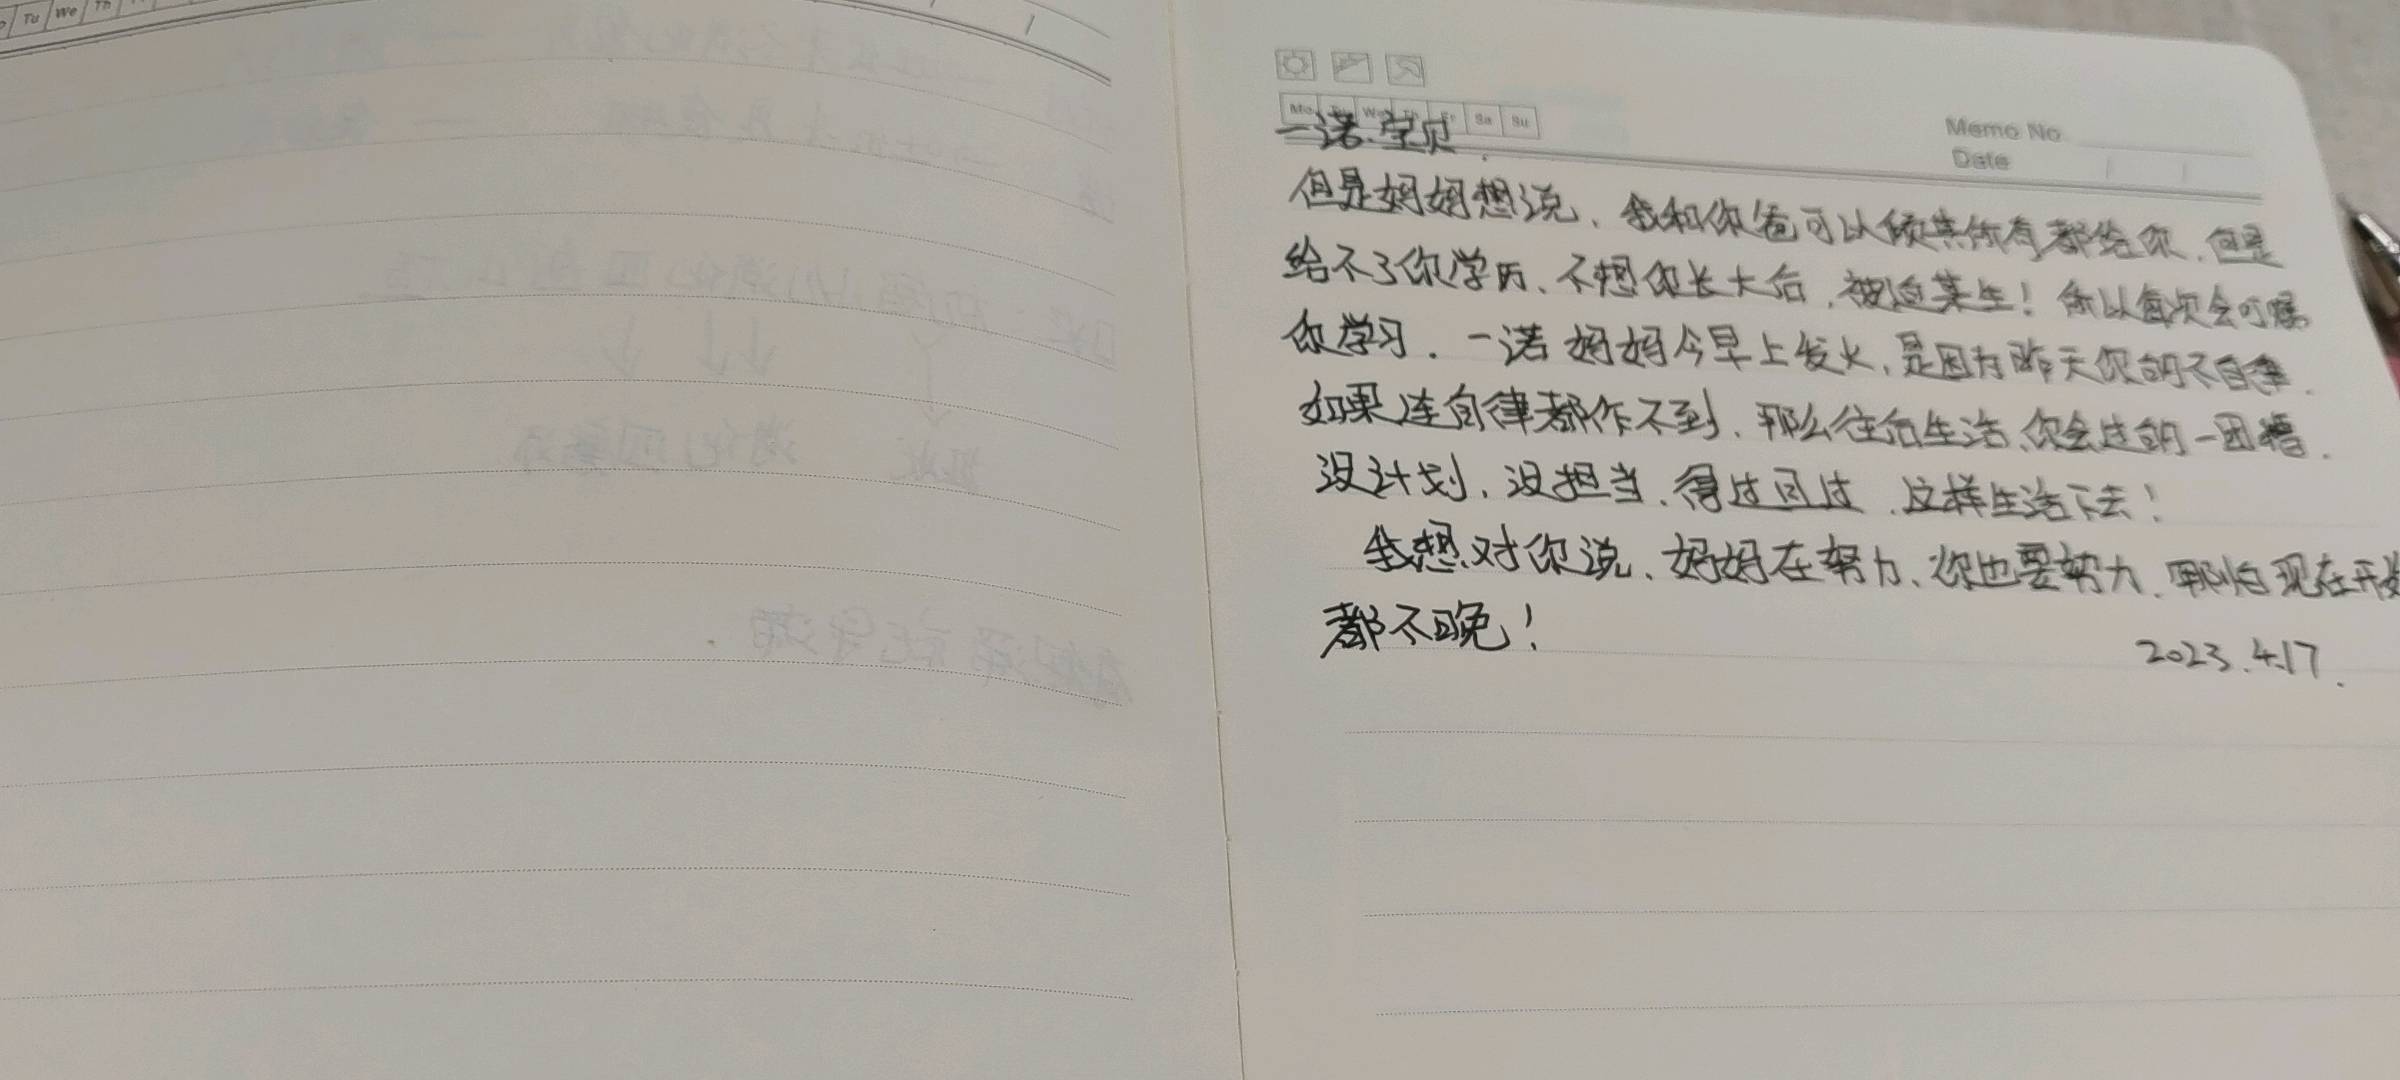 Tu We Th
Mo Tu We Th Fr Sa Su
Memo No
Date / /
一诺.宝贝.
但是妈妈想说、我和你爸可以倾其所有都给你.但是
给不了你学历、不想你长大后,被迫某生!所以每次会叮嘱
你学习.一诺妈妈今早上发火,是因为昨天你的不自律.
如果连自律都作不到、那么往后生活、你会过的一团糟.
没计划、没担当、得过且过、这样生活下去!
我想对你说、妈妈在努力、你也要努力.那怕现在开始
都不晚!
2023.4.17.